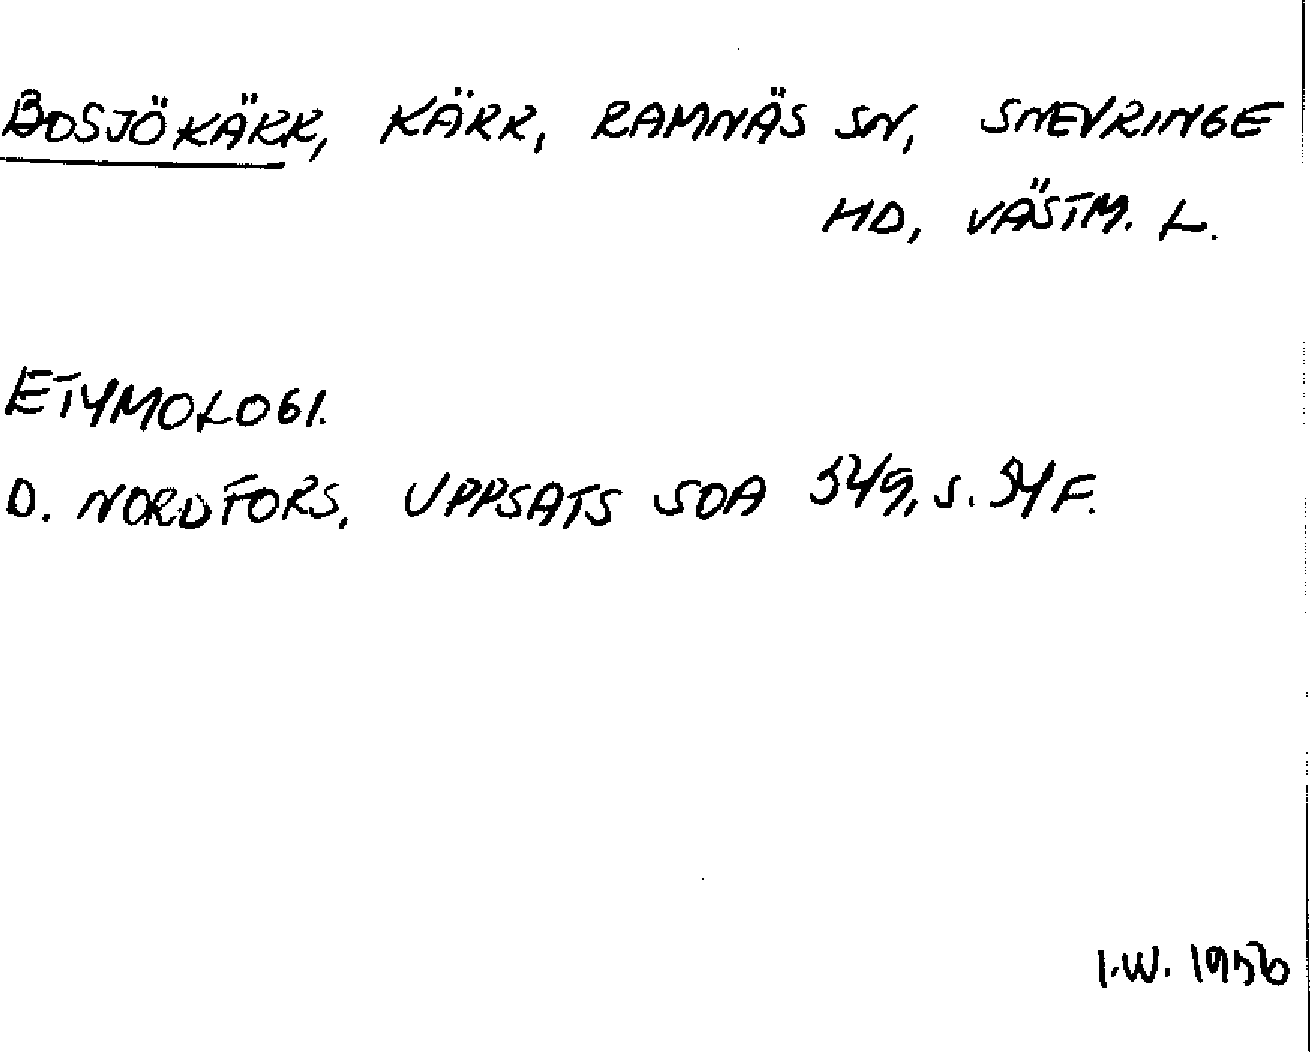 BOSJÖKÄRR, KÄRR, RAMNÄS SN, SNEVRINGE
HD, VÄSTM. L.
ETYMOLOGI.
D. NORDFORS, UPPSATS SOA 549, S. 54 F.
I.W. 1956